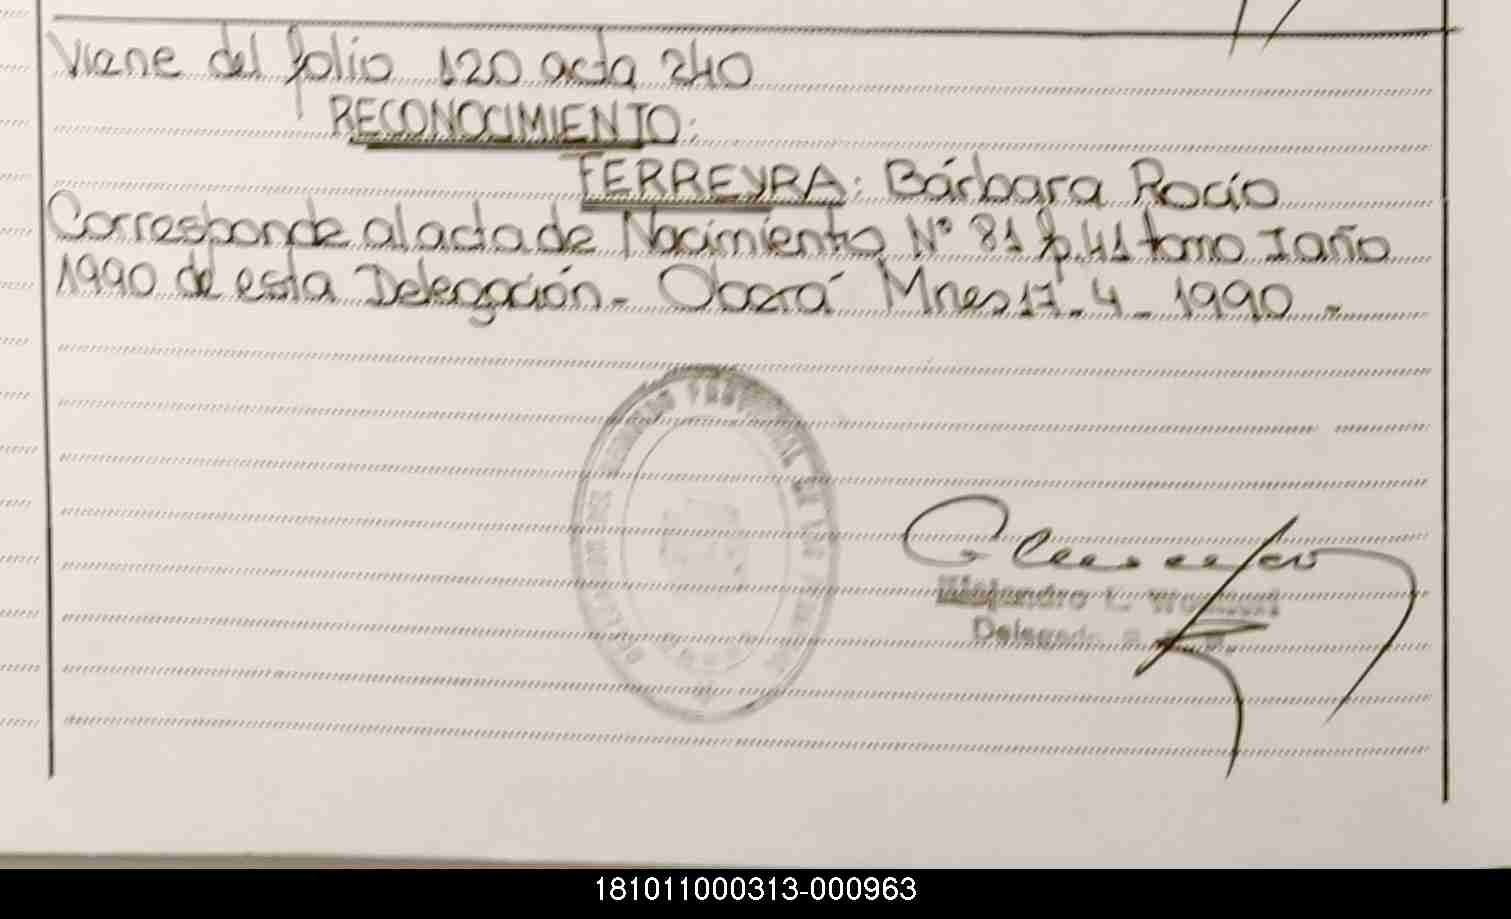 Viene del folio 120 acta 240
RECONOCIMIENTO:
FERREYRA: Bárbara Rocío
Corresponde al acta de Nacimiento Nº 81 fº 41 tomo I año
1990 de esta Delegación - Oberá Mnes 17 - 4 - 1990 . -
PROVINCIAL DE LAS
Alejandro L.
Delegado
181011000313-000963